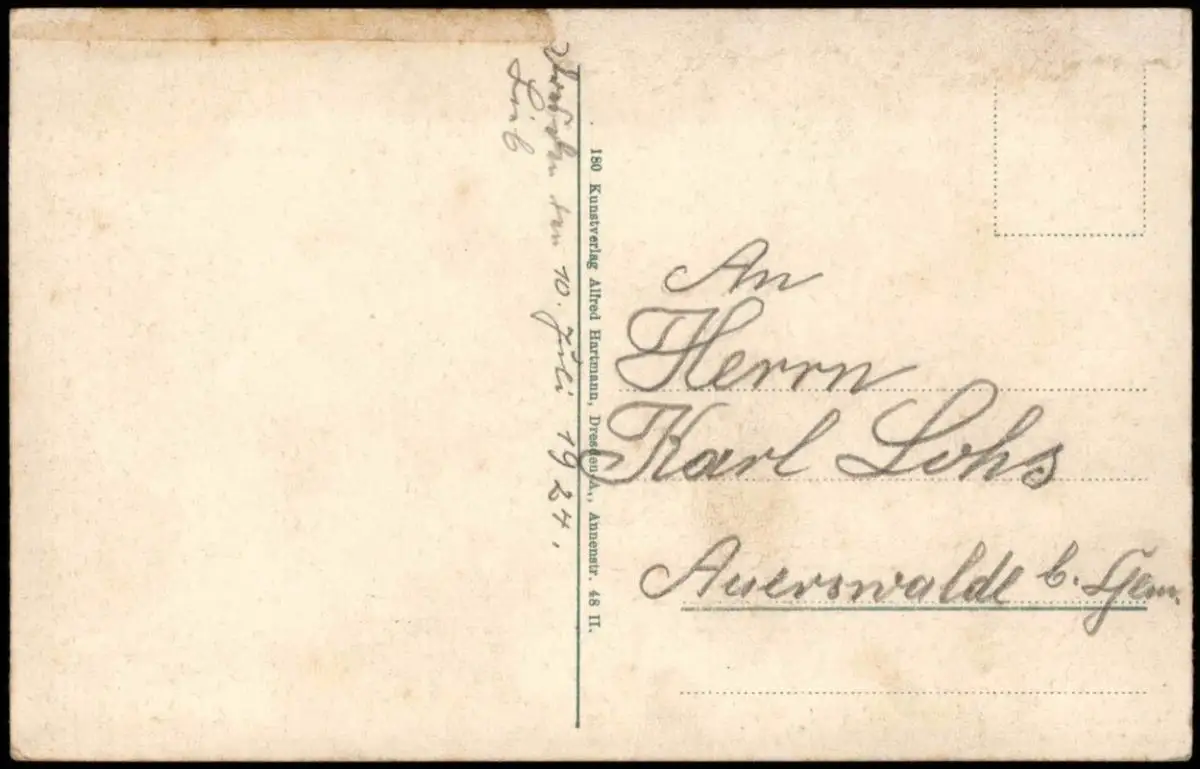 den 10. Juli 1924.
180 Kunstverlag Alfred Hartmann, Dresden-A., Annenstr. 48 II.
An
Herrn
Karl Lohs
Auerswalde b. Chem.